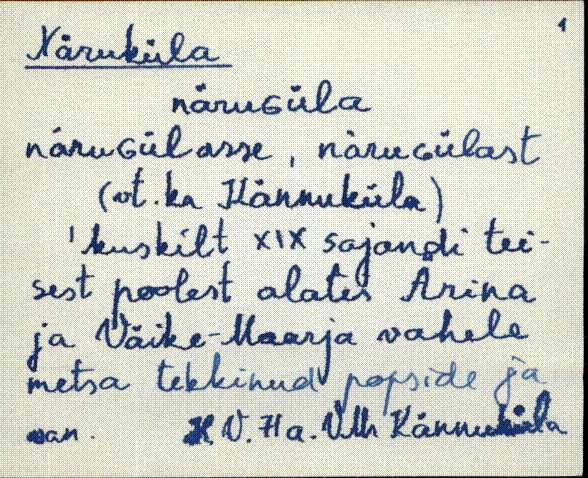 1
Näruküla
näruGüla
näruGülasse, näruGülast
(vt. ka Kännuküla)
'kuskilt XIX sajandi tei-
sest poolest alates Arina
ja Väike-Maarja vahele
metsa tekkinud popside ja
van. K. V. Ha. VMr Kännuküla